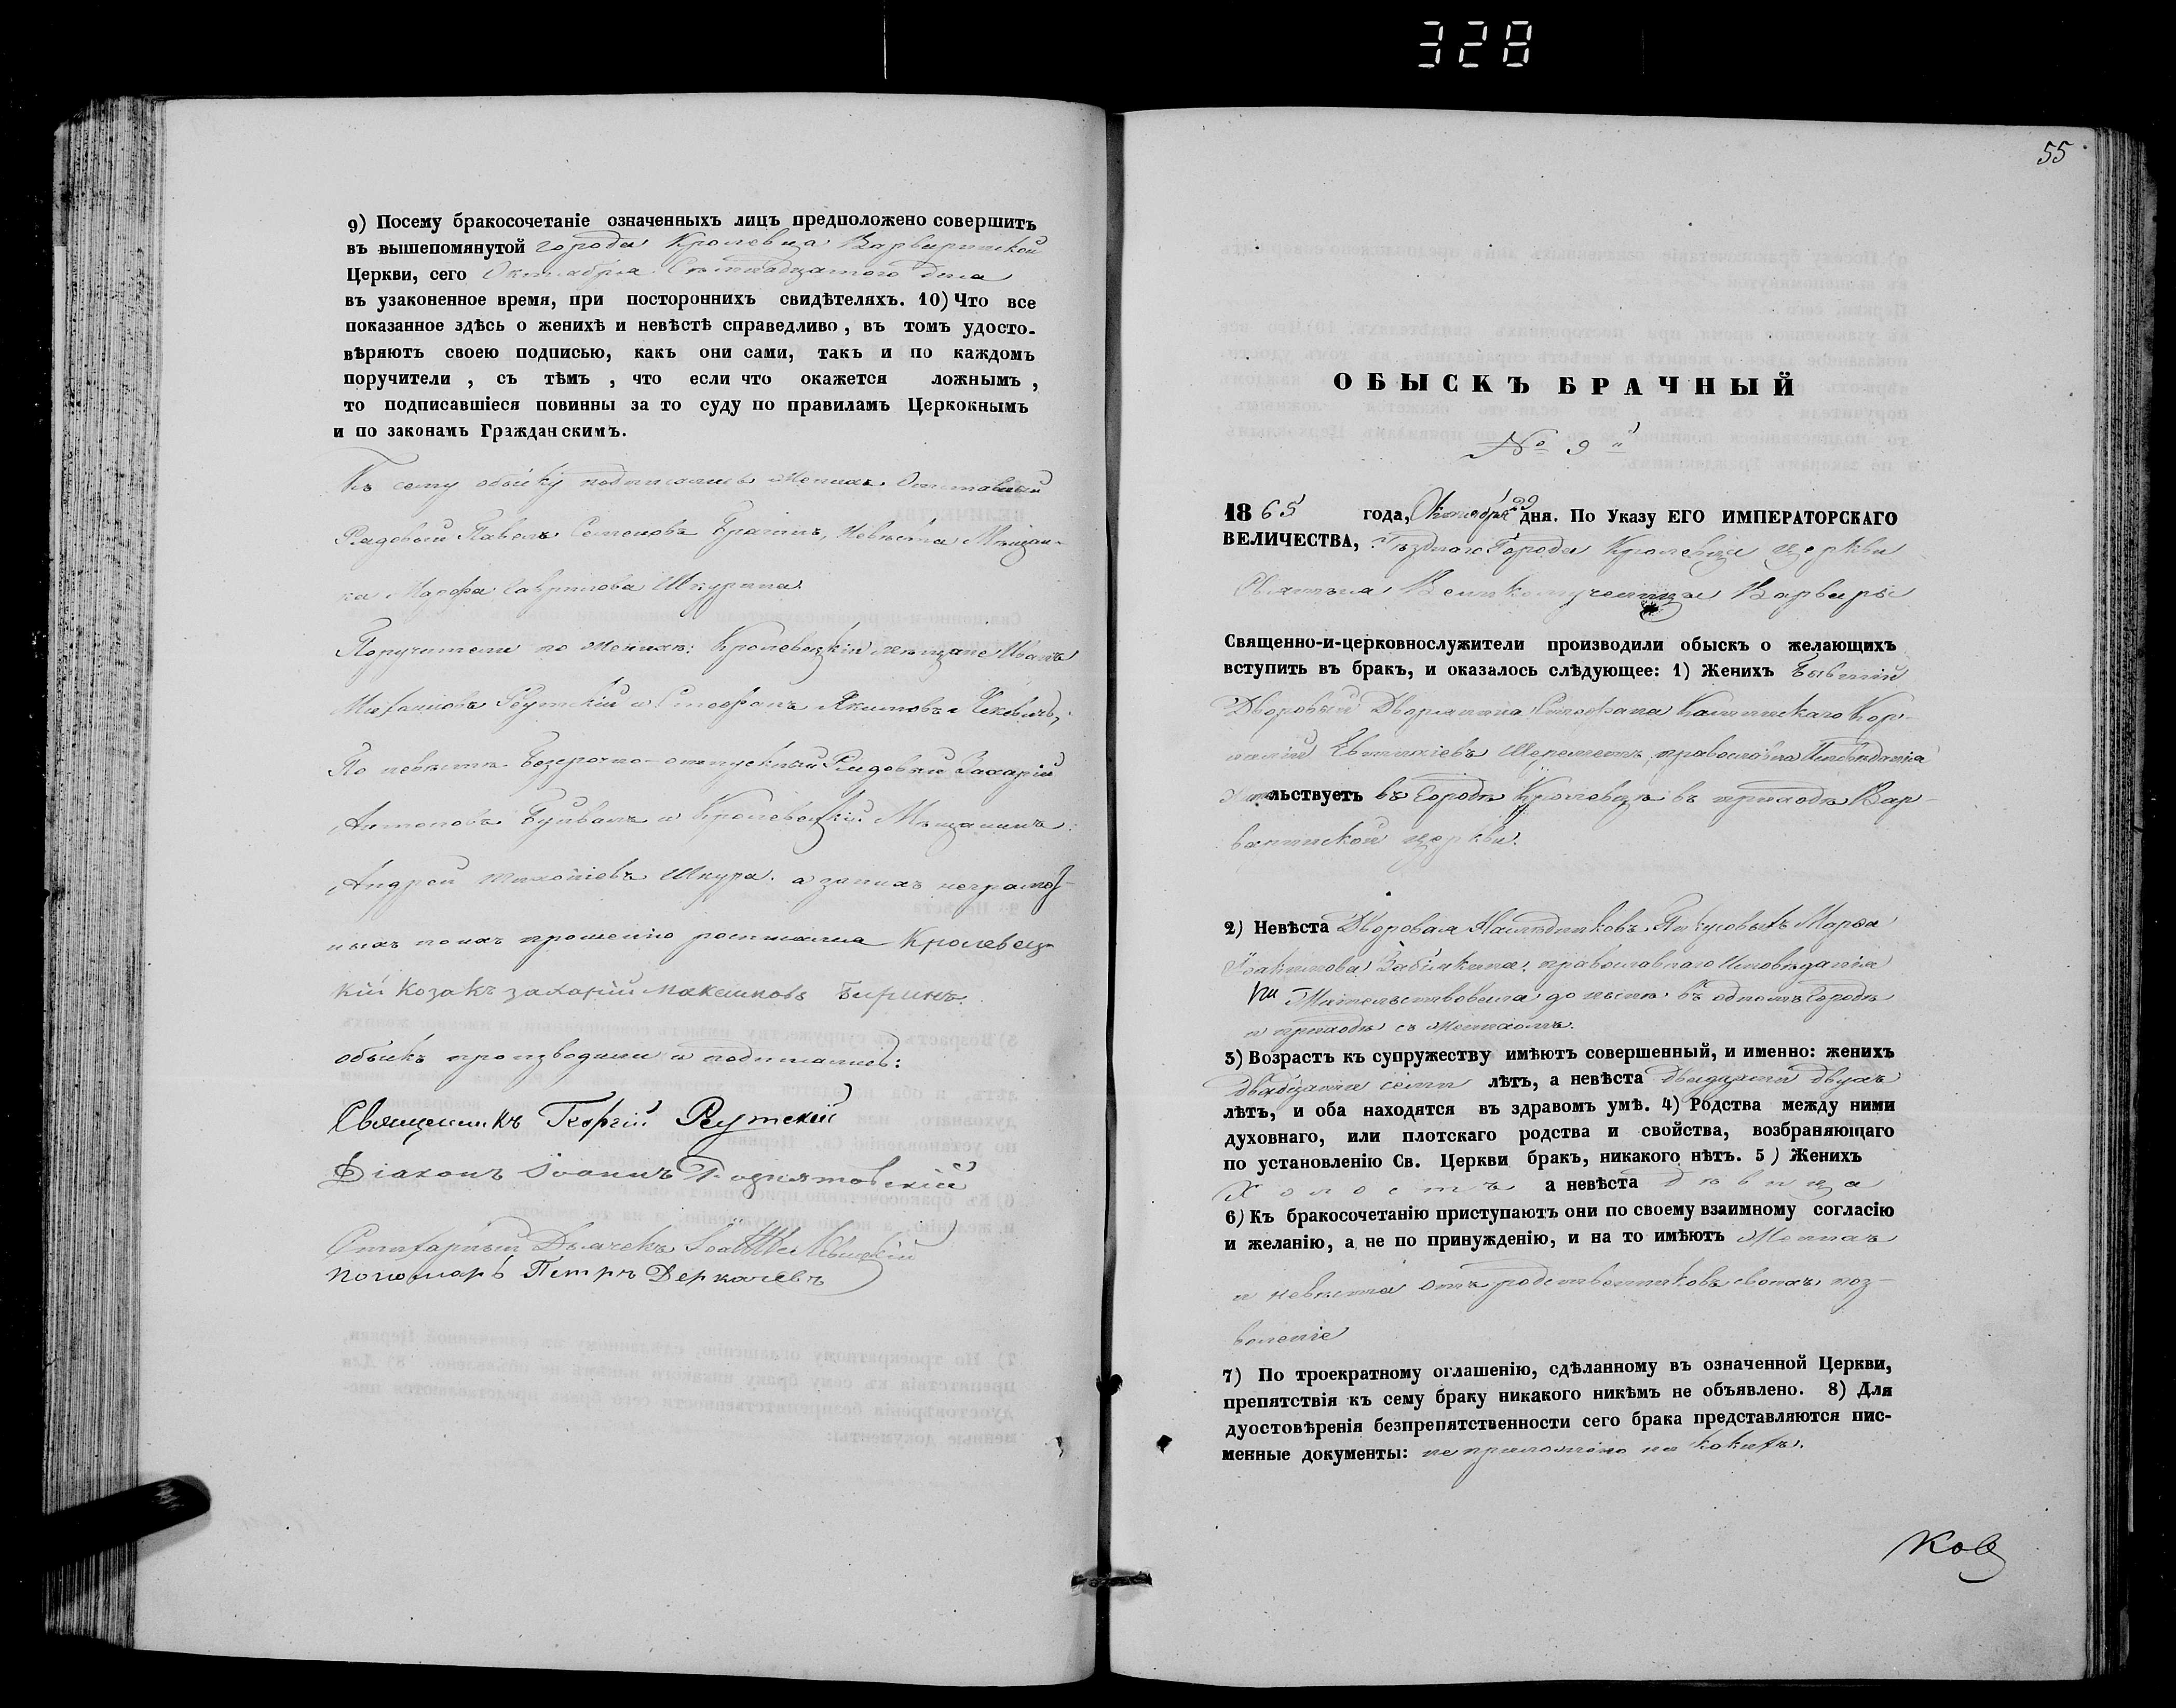 328
9) Посему бракосочетаніе означенныхъ лицъ предположено совершить
въ вышепомянутой города Кролевца Варваринской
Церкви, сего Октября Семнадцатого дня
въ узаконенное время, при постороннихъ свидѣтеляхъ. 10) Что все
показанное здѣсь о женихѣ и невѣстѣ справедливо, въ томъ удосто-
вѣряютъ своею подписью, какъ они сами, такъ и по каждомъ
поручители, съ тѣмъ, что если что окажется ложнымъ,
то подписавшіеся повинны за то суду по правиламъ Церкокнымъ
и по законамъ Гражданскимъ.
Къ сему обыску подписались Женихъ Отставный
Рядовый Павелъ Семеновъ Невѣста Мѣщан-
ка Марфа Гаврилова Шкурина
Поручители по женихѣ: Кролевецкіи мѣщане Иванъ
Михаиловъ Рутскій и Стефанъ Якимовъ
По невѣстѣ Безсрочно-отпускный Рядовый Захарій
Антоновъ и Кролевецкій Мѣщанинъ
Андрей Шкура. а за нихъ неграмот-
ныхъ по ихъ прошенію росписался Кролевец-
кій козакъ Захарій Максимовъ Биринъ.
обыскъ производили и подписались:
Священникъ Георгій Рутскій
Діаконъ Іоаннъ
Дьячекъ
пономарь Петръ Деркачевъ
55
ОБЫСКЪ БРАЧНЫЙ
№ 9й
1865 года, Октября дня. По Указу ЕГО ИМПЕРАТОРСКАГО
ВЕЛИЧЕСТВА, уѣздного Города Кролевца церкви
Святыя Великомученицы Варвары
Священно-и-церковнослужители производили обыскъ о желающихъ
вступить въ бракъ, и оказалось слѣдующее: 1) Женихъ Бывшій
Дворовый Дворянина Стефана Кор-
нилій Евтихіевъ Шереметъ, православна Исповѣданія
жительствуетъ въ Городѣ Кролевцѣ въ приходѣ Вар-
варинской церкви.
2) Невѣста Дворовая Наслѣдниковъ Марѳа
православного Исповѣданія
Жительствовала до нынѣ въ одномъ Городѣ
и приходѣ съ женихомъ.
3) Возрастъ къ супружеству имѣютъ совершенный, и именно: женихъ
двадцати семи лѣтъ, а невѣста двадцати двухъ
лѣтъ, и оба находятся въ здравомъ умѣ. 4) Родства между ними
духовнаго, или плотскаго родства и свойства, возбраняющаго
по установленію Св. Церкви бракъ, никакого нѣтъ. 5) Женихъ
Холостъ а невѣста дѣвица
6) Къ бракосочетанію приступаютъ они по своему взаимному согласію
и желанію, а не по принужденію, и на то имѣютъ Женихъ
и невѣста отъ родственниковъ своихъ поз-
воленіе
7) По троекратному оглашенію, сдѣланному въ означенной Церкви,
препятствія къ сему браку никакого никѣмъ не объявлено. 8) Для
дуостовѣренія безпрепятственности сего брака представляются пис-
менные документы: не приложено ни какихъ.